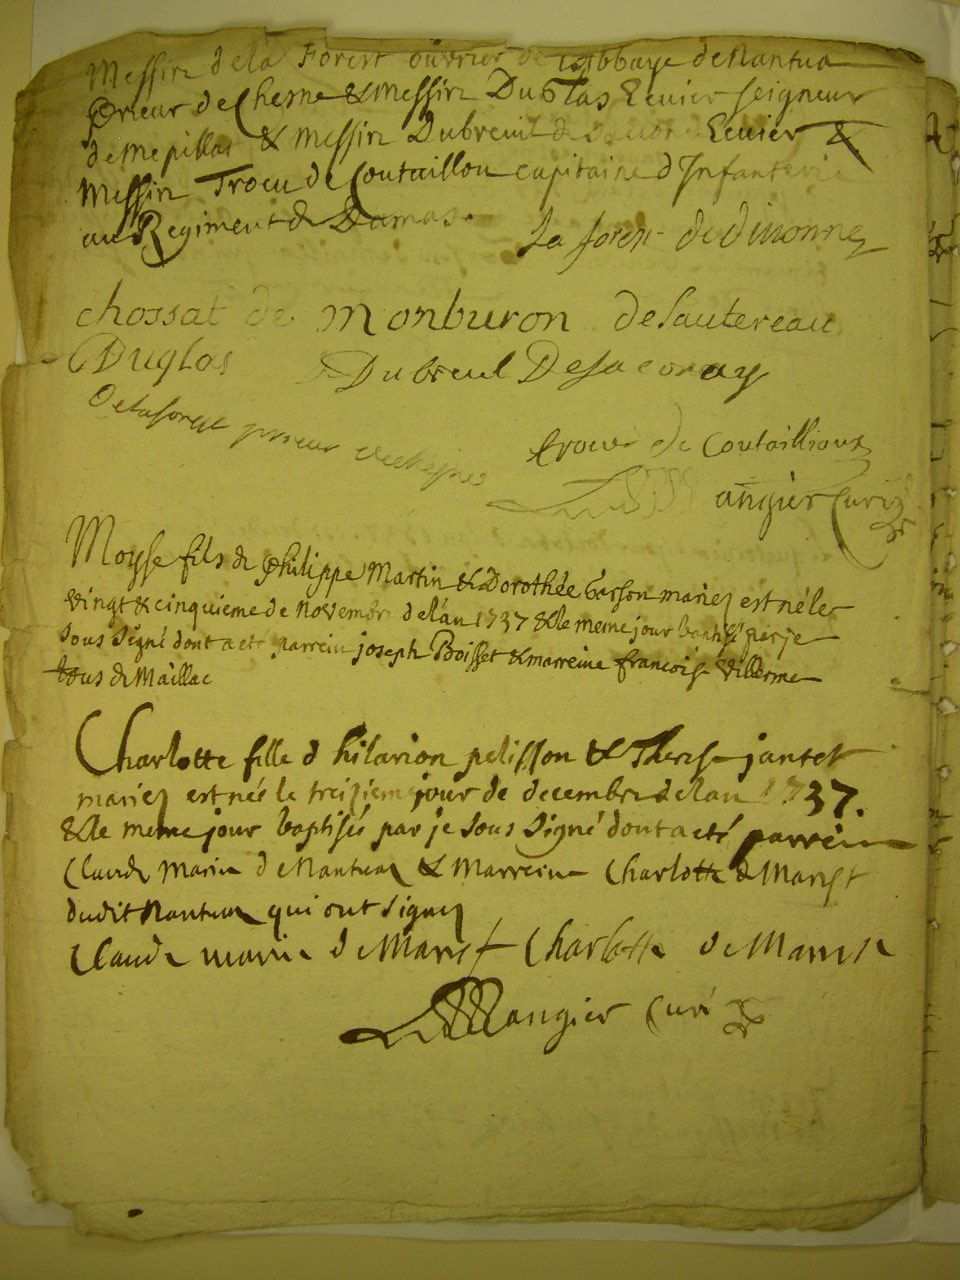 Messire dela Forest ouvrier de l'Abbaye de Nantua
Prieur de Chesne & Messire Duglas Ecuier seigneur
de Mepillat & Messire Dubreuil de Ecuier &
Messire Trocu de Coutaillou capitaine d'Infanterie
au Regiment de Damas.
La forest de divonne
chossat de monburon desautereau
Duglas Dubreul Desaconay
Delaforest prieur
trocu de Coutaillioux
angier Curé
Moyse fils de Philippe Martin & Dorothée mariez est né le
vingt & cinquieme de Novembre de l'an 1737 & le meme jour baptisé par je
sous signé dont a eté parrein joseph Boisset & marreine francoise villerme
tous de Maillac
Charlotte fille d hilarion pelisson & Therese jantet
mariez est née le treizieme jour de decembre de lan 1737.
& le meme jour baptisée par je sous signé dont a eté parrein
Claude Marie de Nantua & Marreine Charlotte de Marest
dudit Nantua qui ont signez
Claude marie de Marest Charlotte de Marest
Mangier Curé